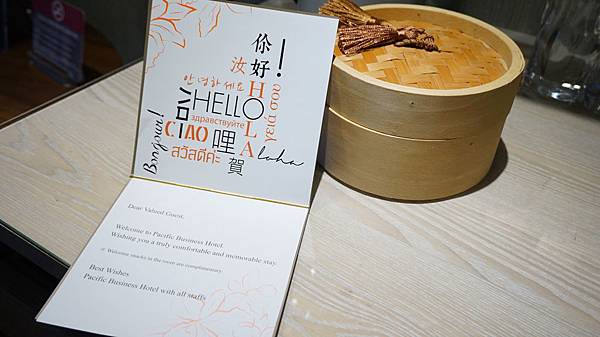 你好!
汝
안녕하세요
HELLO
HOLA
γειά σου
здравствуйте
CIAO
哩
賀
สวัสดีค่ะ
aloha
Bonjour!
Dear Valued Guest,
Welcome to Pacific Business Hotel.
Wishing you a truly comfortable and memorable stay.
Welcome snacks in the room are complimentary.
Best Wishes
Pacific Business Hotel with all staffs